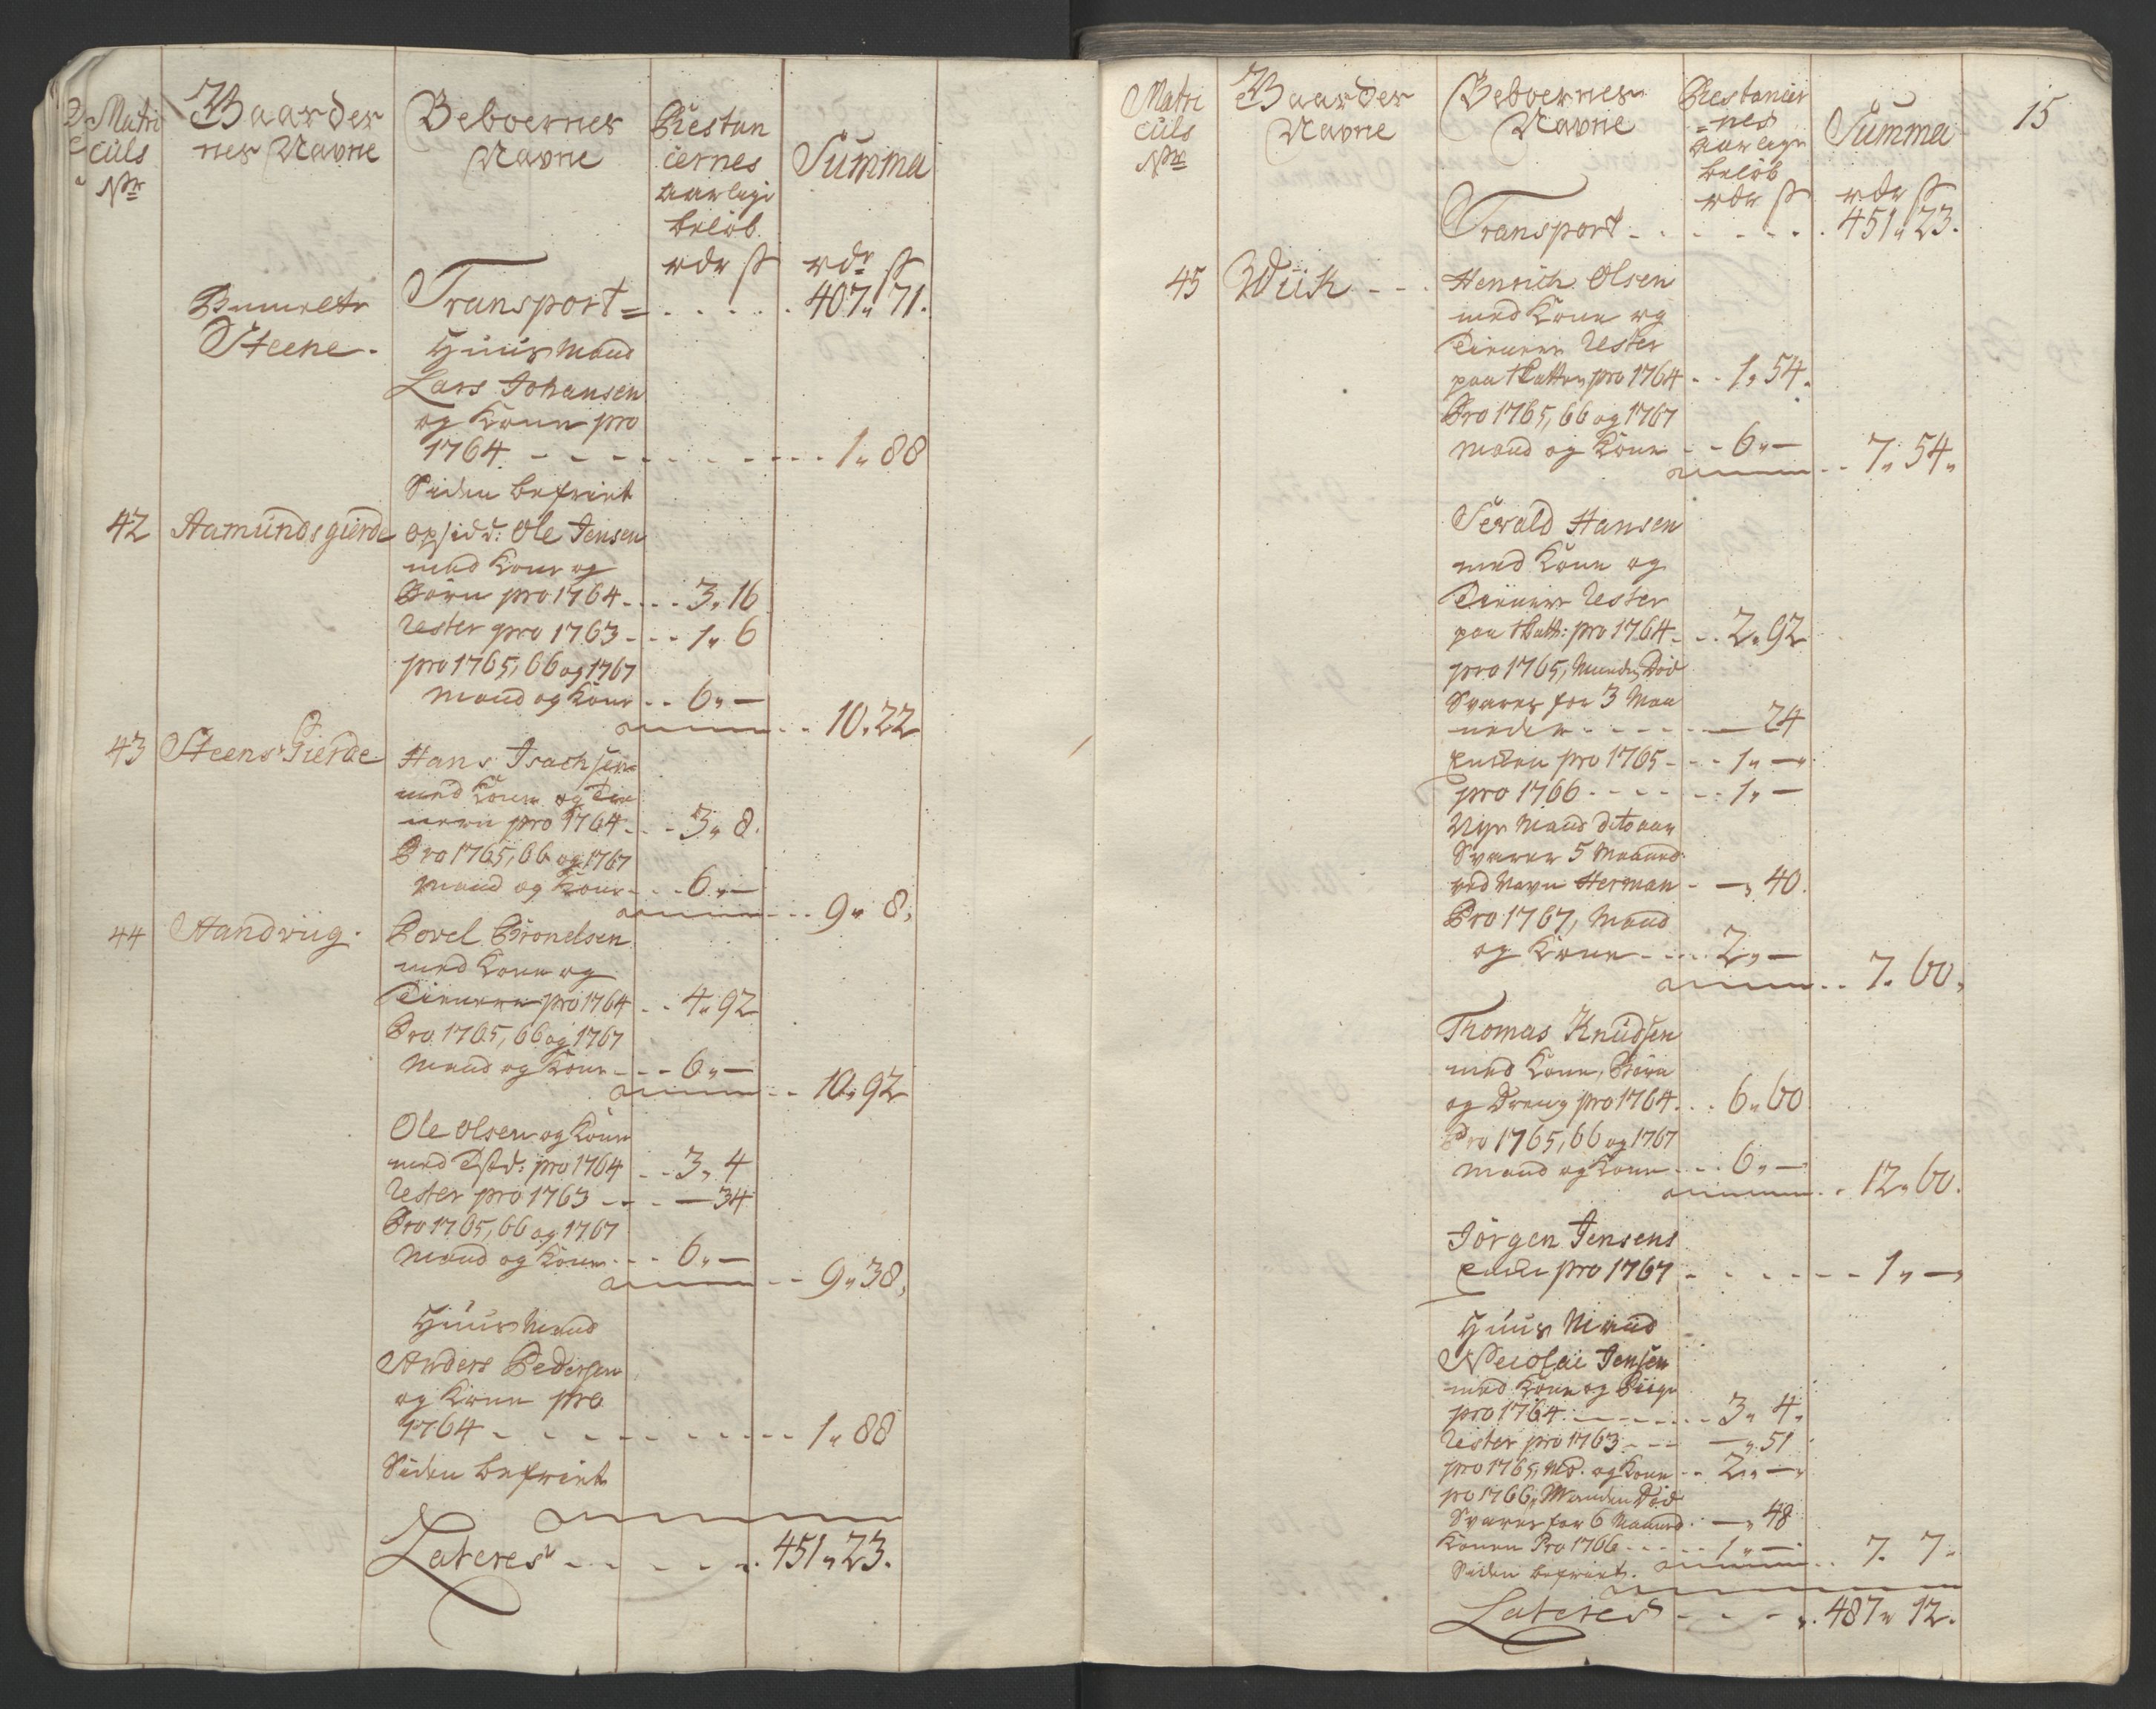 Matri
culs
No
Gaarder
nes Navne
Beboernes
Navne
Restan
cernes
aarlige
beløb.
rdr ß
Summa
rdr ß
Transport = . . . . . 407 „ 71.
Steene.
Huusmand
Lars Johansen
og Kone pro
1764. - - - - - - - - 1 „ 88
Siden befriet
42 Aamundsgierde
opsidd: Ole Jensen
med Kone og
Børn pro 1764 - - - 3 „ 16
Rester pro 1763 - - - 1 „ 6
pro 1765, 66 og 1767
Mand og Kone - - 6 „ —
- - 10 „ 22
43 Steens Gierde
Hans Isachsen
med Kone og Tie
nere pro 1764 - - - 3 „ 8.
Pro 1765, 66 og 1767
Mand og Kone - - - 6 „ —
- - 9 „ 8.
44 Handviig.
Povel Bronelsen
med Kone og
Tienere pro 1764 - - 4 „ 92
Pro 1765, 66 og 1767
Mand og Kone - - - 6 „ —
- - 10 „ 92
Ole Olsen og Kone
med pro 1764 - - 3 „ 4
Rester pro 1763 - - - — 34
Pro 1765, 66 og 1767
Mand og Kone - - - 6 „ —
- - 9 „ 38,
Huusmand
Anders Pedersen
og Kone pro
1764 - - - - - - - - - 1 „ 88
Siden befriet
Lateres - - - - - . 451 „ 23.
15
Matri
culs
No
Gaarder
Navne
Beboernes
Navne
Restancier
=nes
aarlige
beløb
rdr ß
Summa
rdr ß
Transport - . - - - . . 451 „ 23.
45 Wiik - - .
Henrich Olsen
med Kone og
Tienere Rester
paa Skatten pro 1764 - - 1 „ 54.
Pro 1765, 66 og 1767
Mand og Kone - - 6 „ —
- - 7 „ 54 „
Sevald Hansen
med Kone og
Tienere Rester
paa Skatt: pro 1764 - - 2 „ 92
pro 1765, Manden Død
Svarer for 3 Maa
neder - - - - - — 24
Enken pro 1765 - - - 1 „ —
pro 1766 - - - - - - 1 „ —
Nye Mand dito aar
Svarer 5 Maaned
ved Navn Herman - — „ 40.
Pro 1767, Mand
og Kone - - - - 2 „ —
- - 7 „ 60,
Thomas Knudsen
med Kone, Børn
og Dreng pro 1764 - - - 6 „ 60
Pro 1765, 66 og 1767
Mand og Kone - - - 6 „ —
- - 12 „ 60.
Jørgen Jensens
Enke pro 1767 - - - - - - - 1 „ —
Huus Mand
Nicolai Jensen
med Kone og Piige
pro 1764 - - - - - - 3 „ 4 „
Rester pro 1763 - - - — „ 51
pro 1765, Md. og Kone - - 2 „ —
pro 1766, Manden Død
Svarer for 6 Maaned - — „ 48
Konen Pro 1766 - - - - 1 „ —
Siden befriet.
- - 7 „ 7 „
Lateres - - - - „ . 487 „ 12.